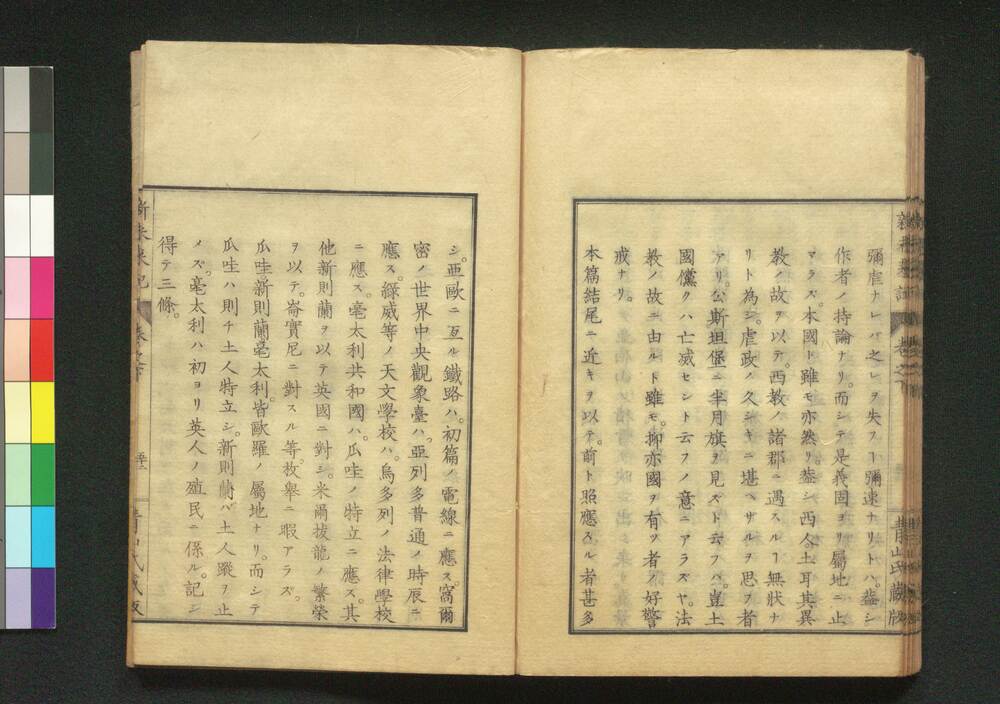 彌虐ナレバ之レヲ失フヿ彌速ナリトハ。蓋シ
作者ノ持論ナリ。而シテ是義固ヨリ屬地ニ止
マラズ。本國ト雖モ亦然リ。蓋シ西人土耳其異
教ノ故ヲ以テ。西教ノ諸郡ニ遇スルヿ無狀ナ
リト為シ。虐政ノ久シキニ堪ヘザルヲ思フ者
アリ。公斯坦堡ニ半月旗ヲ見ズト云フハ。豈土
國儻クハ亡滅セント云フノ意ニアラズヤ。法
教ノ故ニ由ルト雖モ。抑亦國ヲ有ツ者ノ好警
戒ナリ。
本篇結尾ニ近キヲ以テ。前ト照應スル者甚多
青山氏藏版
シ。亞歐ニ亙ル鐵路ハ。初篇ノ電線ニ應ス。窩爾
密ノ世界中央觀象臺ハ。亞列多普通ノ時辰ニ
應ス。綠威等ノ天文學校ハ。烏多列ノ法律學校
ニ應ス。毫太利共和國ハ。瓜哇ノ特立ニ應ス。其
他新則蘭ヲ以テ英國ニ對シ。米爾拔龍ノ繁榮
ヲ以テ。崙實尼ニ對スル等。枚舉ニ暇アラズ。
瓜哇新則蘭毫太利。皆歐羅ノ屬地ナリ。而シテ
瓜哇ハ則チ土人特立シ。新則蘭ハ土人蹤ヲ止
メズ。毫太利ハ初ヨリ英人ノ殖民ニ係ル。記シ
得テ三條。
新未來記
卷之下
青山氏藏版